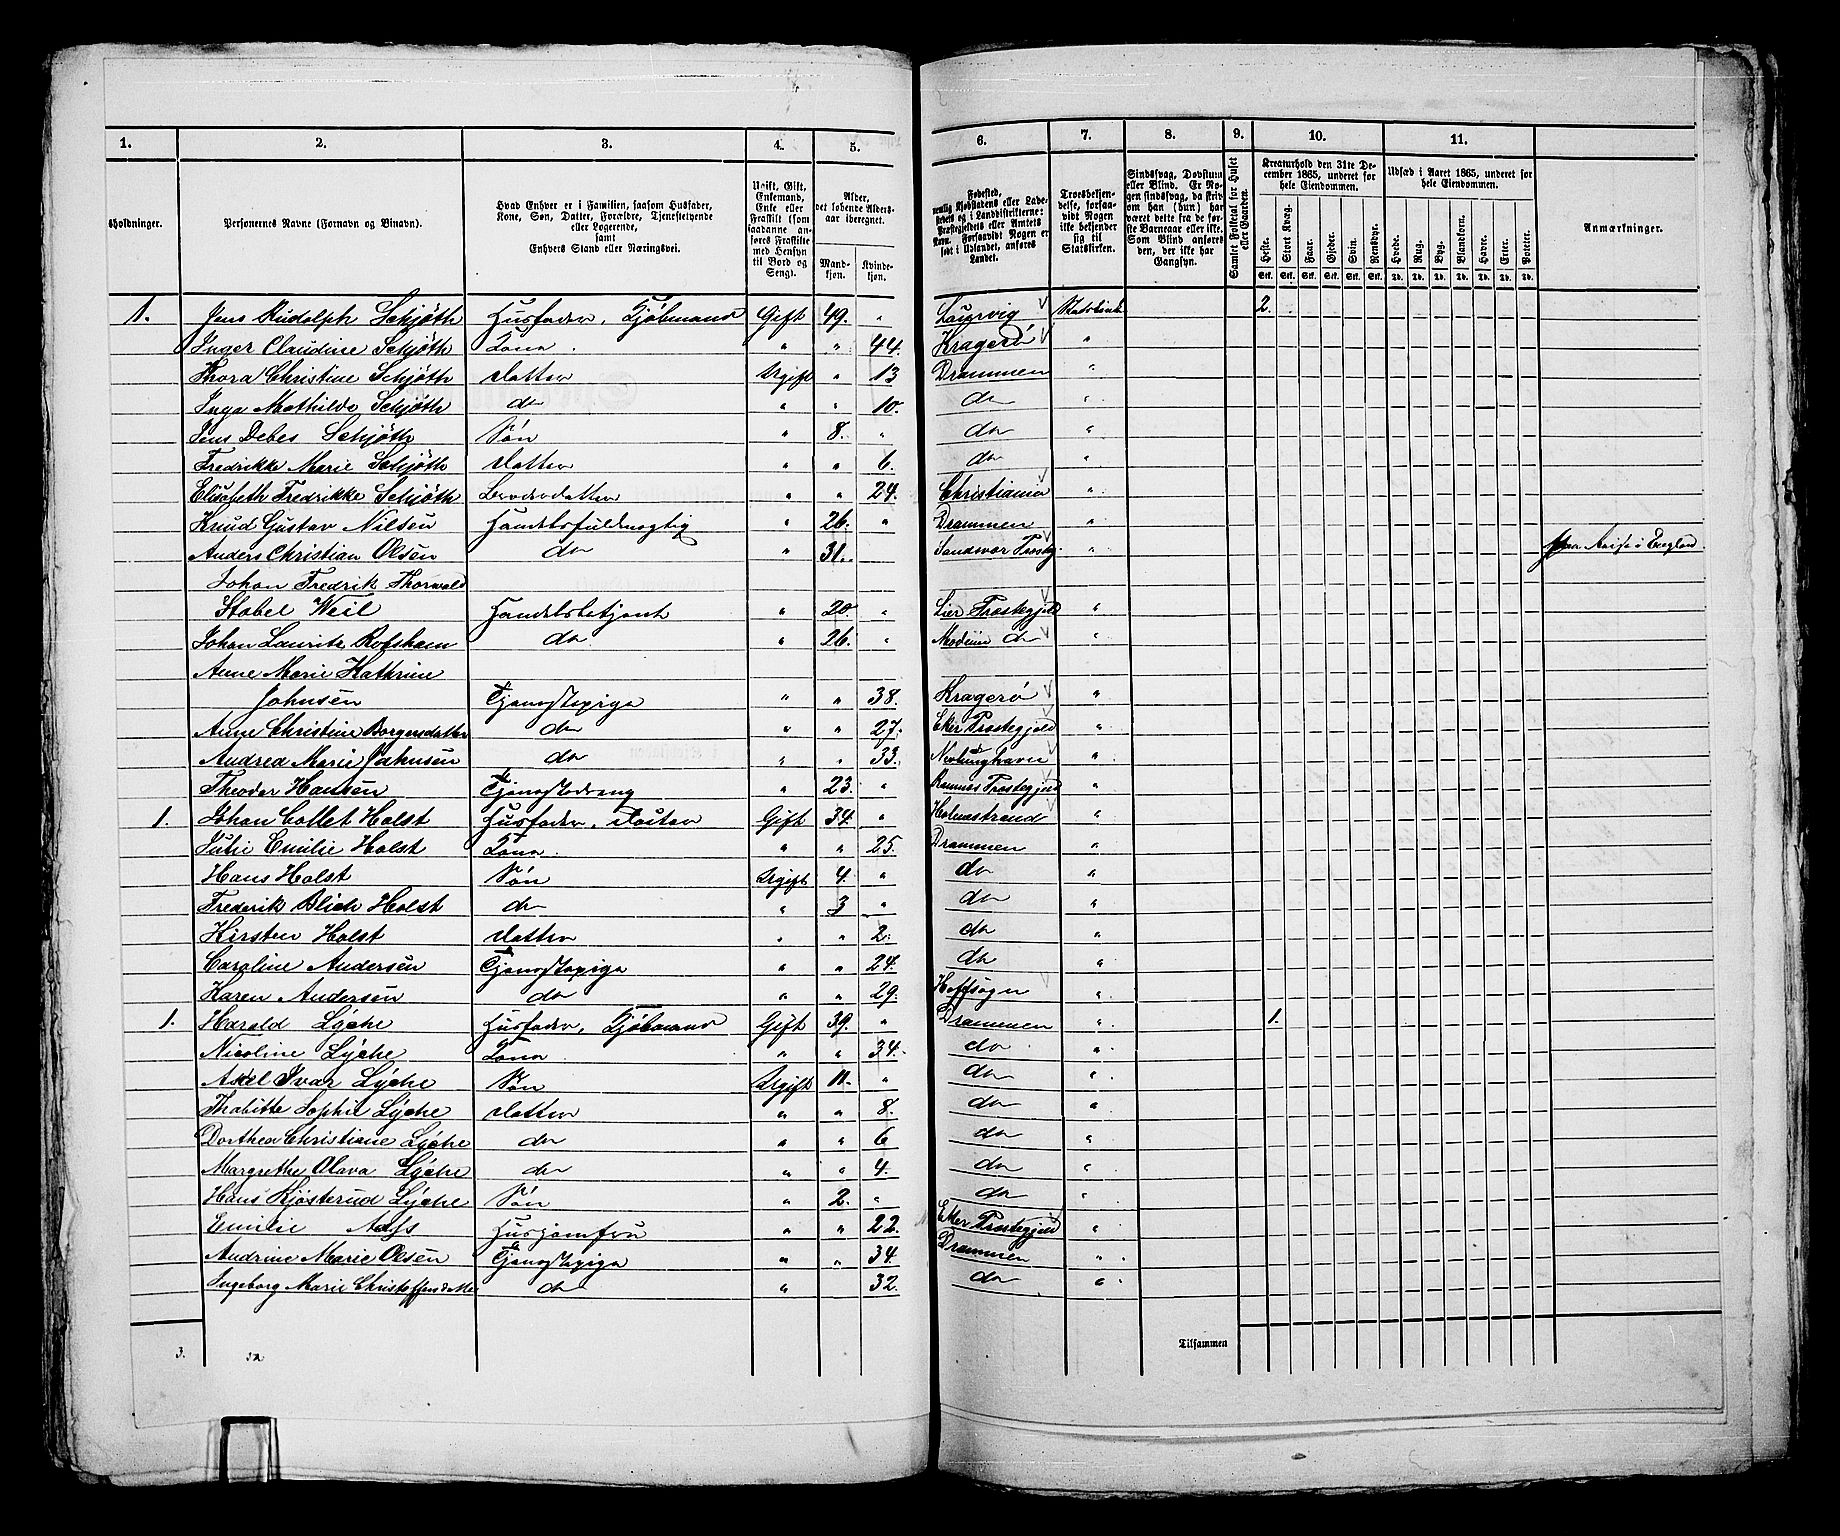 1. 2. 3. 4. 5. 6. 7. 8. 9. 10. 11.
sholdninger.
Personernes Navne (Fornavn og Binavn).
Hvad Enhver er i Familien, saasom Husfader,
Kone, Søn, Datter, Forældre, Tjenestetyende
eller Logerende,
samt
Enhvers Stand eller Næringsvei.
Ugift, Gift,
Enkemand,
Enke eller
Fraskilt (som
saadanne an-
føres Fraskilte
med Hensyn
til Bord og
Seng).
Alder,
det løbende Alders-
aar iberegnet.
Mand-
kjøn.
Kvinde-
kjøn.
Fødested,
nemlig Kjøbstadens eller Lade-
stedets og i Landdistrikterne:
Præstegjeldets eller Amtets
Navn. Forsaavidt Nogen er
født i Udlandet, anføres
Landet.
Troesbekjen-
delse, forsaa-
vidt Nogen
ikke bekjender
sig til
Statskirken.
Sindssvag, Døvstum
eller Blind. Er No-
gen sindssvag, da skriv
om han (hun) har
været dette fra de før-
ste Barneaar eller ikke.
Som Blind anføres
den, der ikke har
Gangsyn.
Samlet Folketal for Huset
eller Gaarden.
Kreaturhold den 31te De-
cember 1865, underet for
hele Eiendommen.
Heste. Stort Kvæg. Faar. Gjeder. Svin. Rensdyr.
Stk. Stk. Stk. Stk. Stk. Stk.
Udsæd i Aaret 1865, underet for
hele Eiendommen.
Hvede. Rug. Byg. Blandkorn. Havre. Erter. Poteter.
Td. Td. Td. Td. Td. Td. Td.
Anmærkninger.
1. Jens Rudolph Schjøth Husfader, Kjøbmand Gift 49. " Laurvig Statskirk 2.
Inger Claudine Schjøth Kone. " " 44. Kragerø "
Thora Christine Schjøth Datter Ugift " 13 Drammen "
Inga Mathilde Schjøth do " " 10. do "
Jens Debes Schjøth Søn " 8. " do "
Fredrikke Marie Schjøth Datter " " 6. do "
Elisabeth Fredrikke Schjøth Broderdatter " " 24. Christiania "
Knud Gustav Nilsen Handelsfuldmægtig " 26. " Drammen "
Anders Christian Olsen do " 31. Præstg. " paa Reise i England.
Johan Fredrik Thorwald
Stabel Weil Handelsbetjent " 20. " Lier Præstegjeld "
Johan Lauritz do " 26. " Modum do "
Anne Marie Kathrine
Johnsen Tjenestepige " " 38. Kragerø "
Anne Christine Borgersdatter do " " 27. Eker Præstegjeld "
Andrea Marie Johnsen do " " 33. Nevlunghavn "
Theodor Hansen Tjenestedreng " 23. " Ramnæs Præstegjeld "
1. Johan Collet Holst Husfader, Doctor Gift 34. " Holmestrand "
Julie Emilie Holst Kone. " " 25. Drammen "
Hans Holst Søn Ugift 4. " do "
Frederik Blich Holst do " 3 " do "
Kirsten Holst Datter " " 2. do "
Caroline Andersen Tjenestepige " " 24. do "
Karen Andersen do " " 29. Hoffsogn "
1. Harald Lyche Husfader, Kjøbmand Gift 39. " Drammen " 1.
Nicoline Lyche Kone " " 34. do "
Axel Ivar Lyche Søn Ugift 11. " do "
Thabitte Sophie Lyche Datter " " 8. do "
Dorthea Christiane Lyche do " " 6 do "
Margrethe Olava Lyche do " " 4. do "
Hans Kjøsterud Lyche Søn " 2. " do "
Emilie Husjomfru " " 22. Eker Præstegjeld "
Andrine Marie Olsen Tjenestepige " " 34. Drammen "
Ingeborg Marie Christoffersdatter do " 32. do "
3. 32
Tilsammen